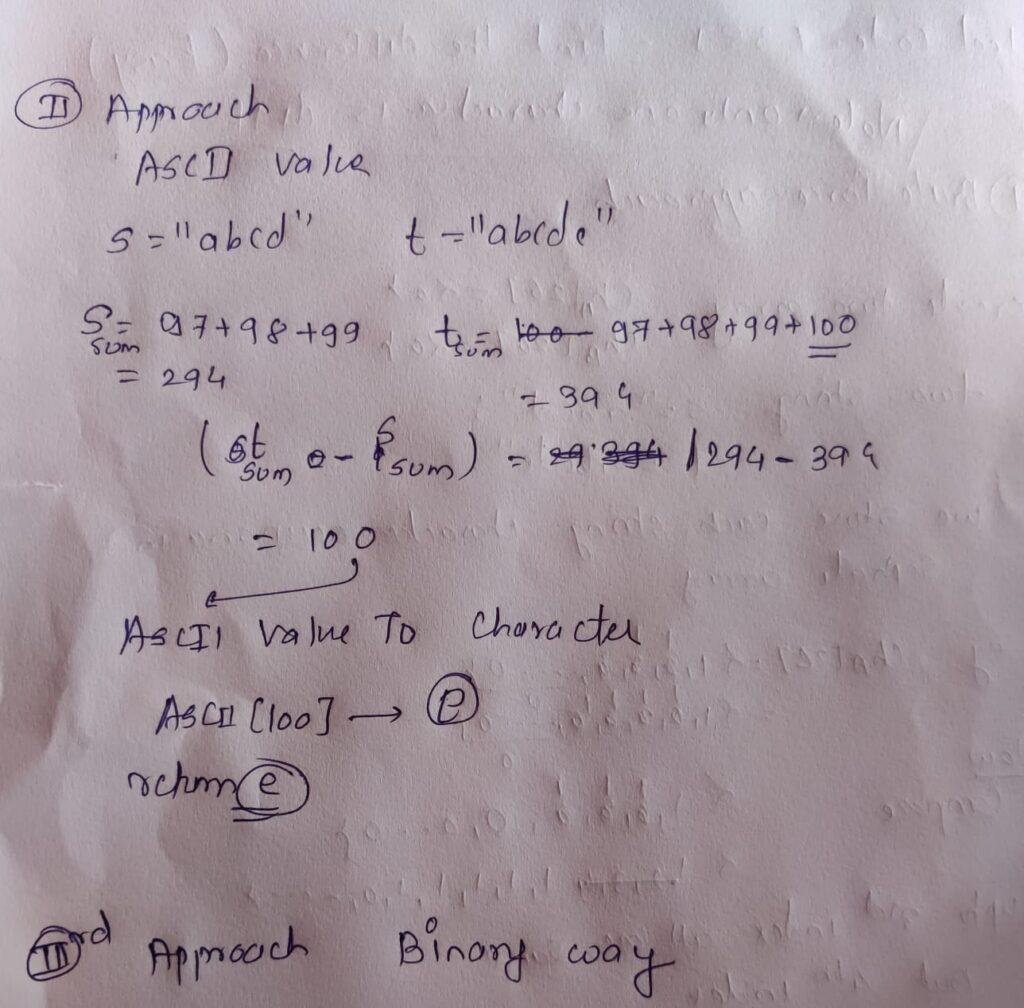 II Approach
ASCII value
s = "abcd" t = "abcde"
S sum = 97+98+99 t sum = 100 97+98+99+100
= 294 = 394
(st sum - S sum) = 29 394 |294 - 394
= 100
ASCII value To Character
ASCII [100] → e
return e
III rd Approach Binary way